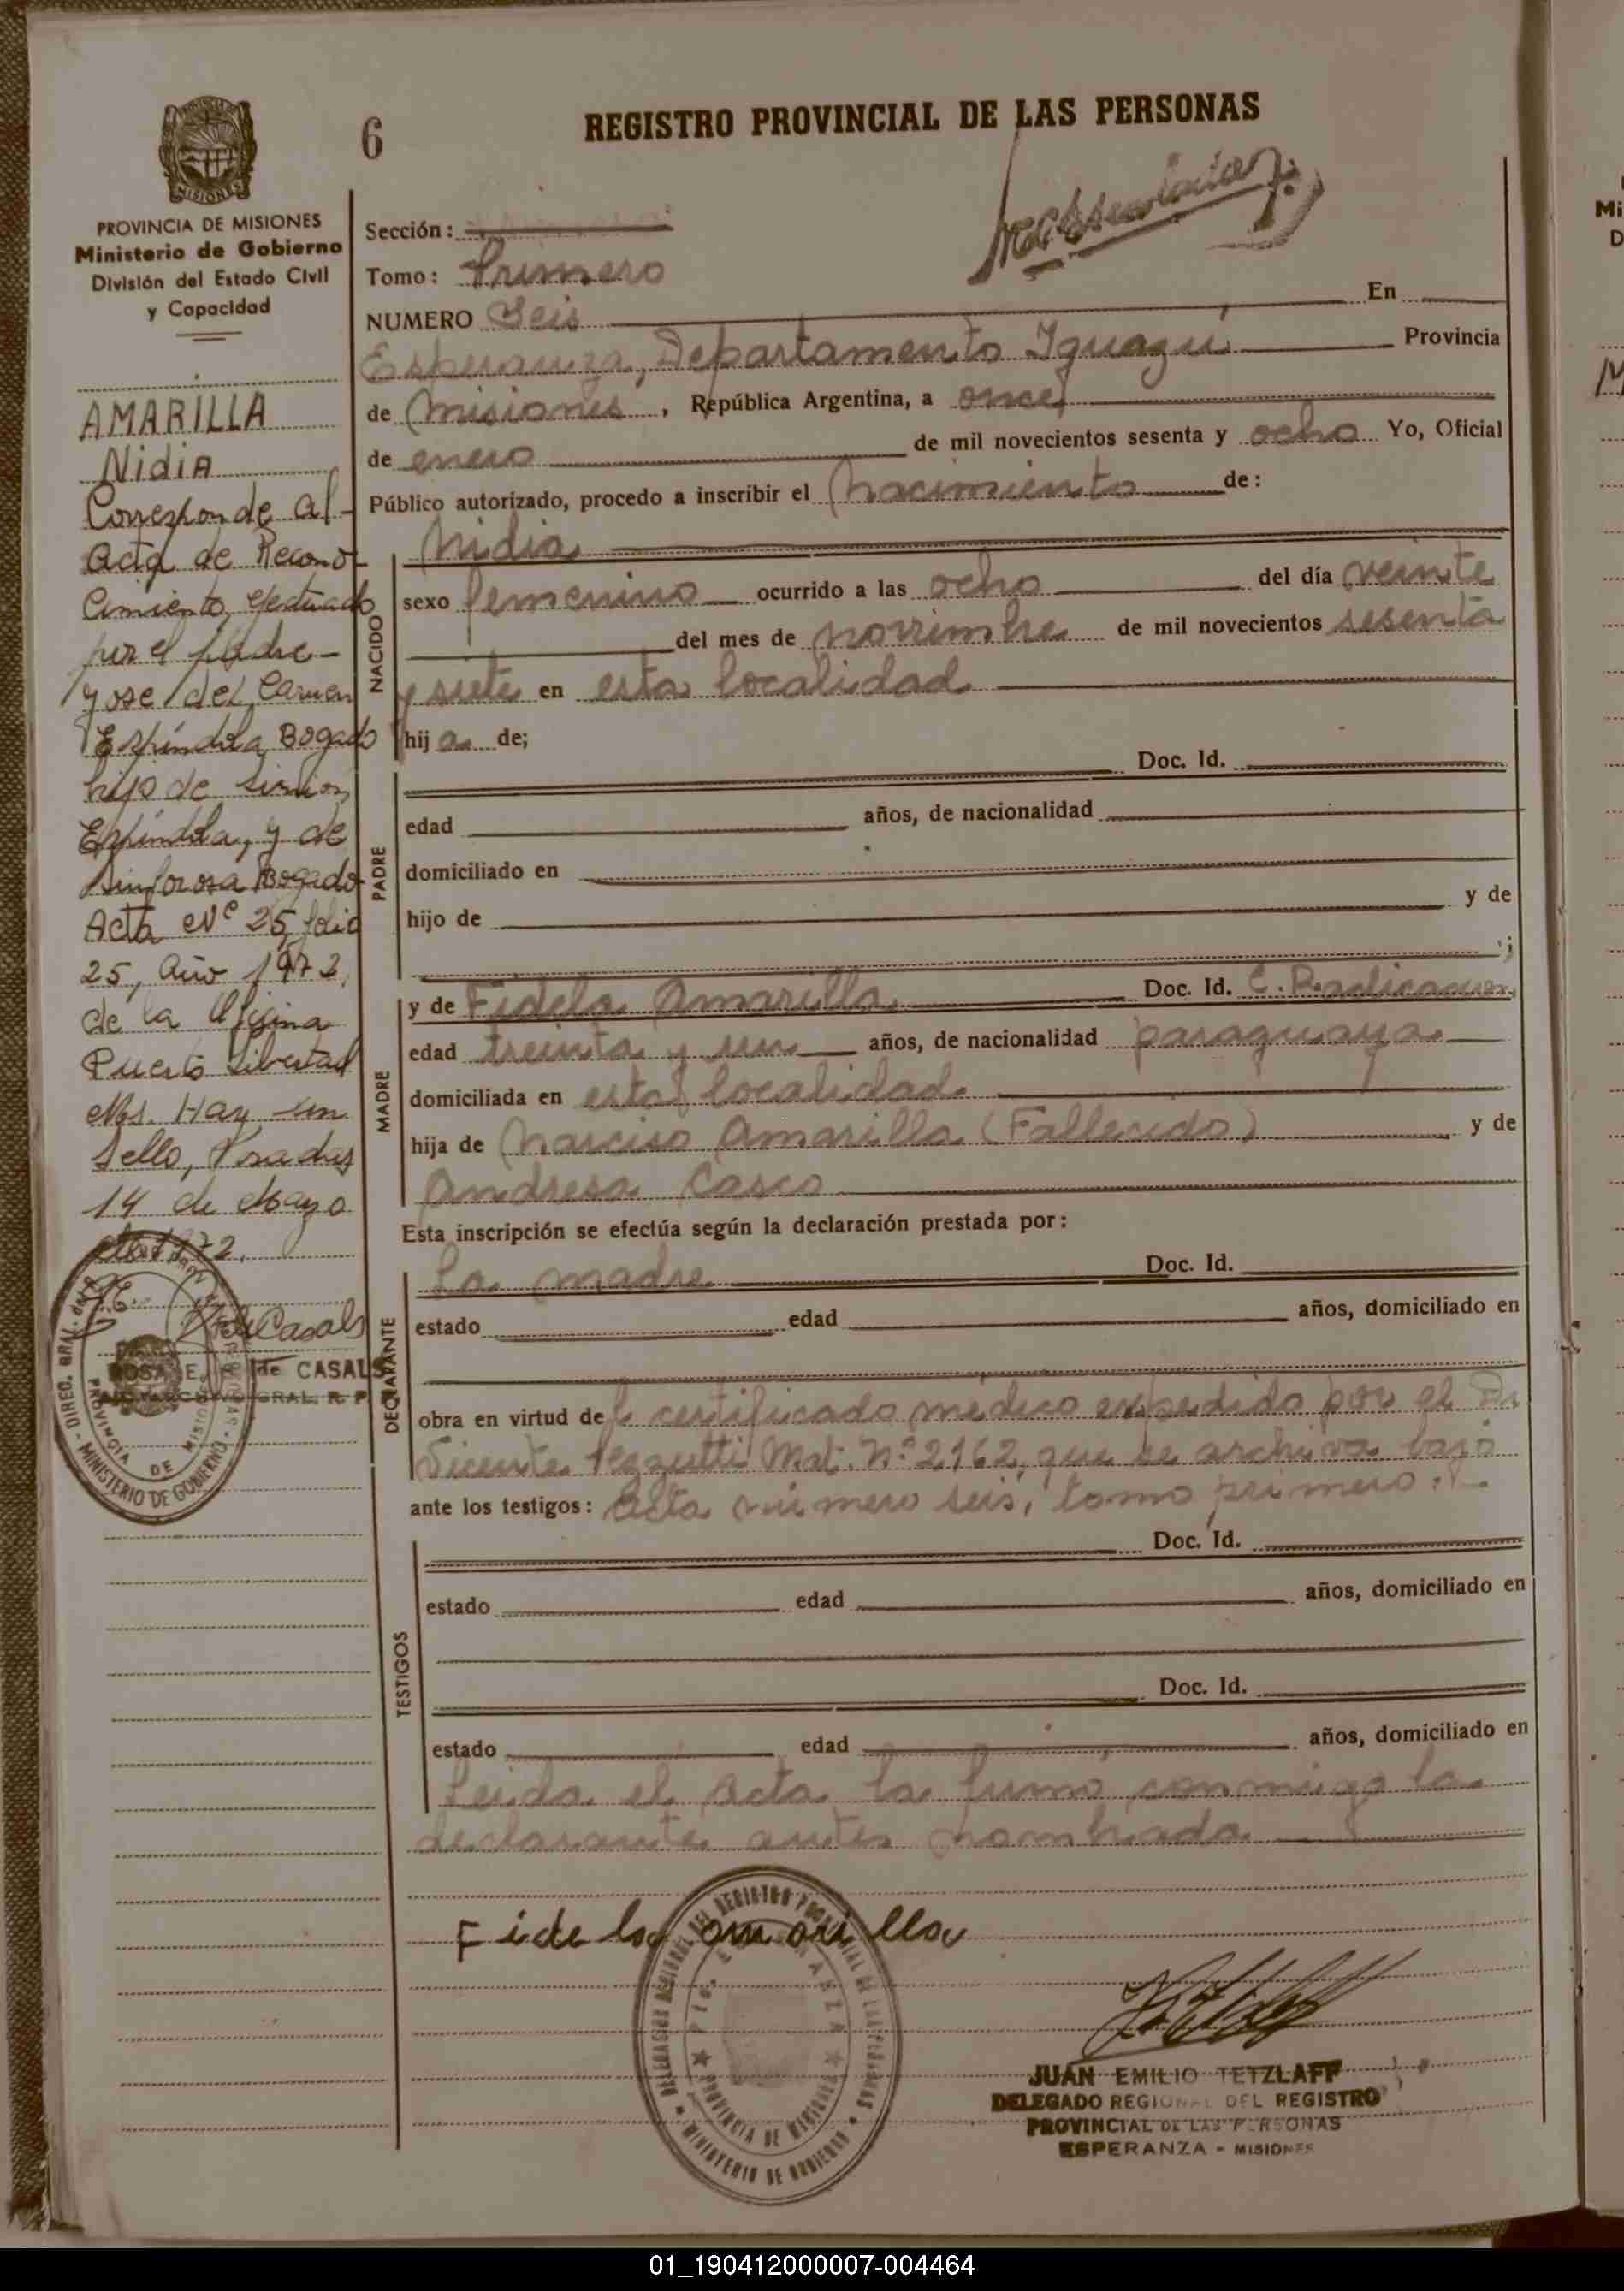 6
REGISTRO PROVINCIAL DE LAS PERSONAS
MISIONES
PROVINCIA DE MISIONES
Ministerio de Gobierno
División del Estado Civil
y Capacidad
AMARILLA
Nidia
Corresponde al
Acta de Recono-
cimiento, efectuado
por el padre
José del Carmen
Espíndola Bogado
hijo de Simón
Espíndola, y de
Sinforosa Bogado
Acta Nº 25, folio
25, Año 1972,
de la Oficina
Puerto Libertad
Mns. Hay un
Sello, Posadas
14 de Mayo
1972.
ROSA E. de CASALS
Sección:
Tomo: Primero
NUMERO Seis En
Esperanza, Departamento Iguazú Provincia
de Misiones, República Argentina, a once
de enero de mil novecientos sesenta y ocho Yo, Oficial
Público autorizado, procedo a inscribir el Nacimiento de:
NACIDO
Nidia
sexo femenino ocurrido a las ocho del día veinte
del mes de noviembre de mil novecientos sesenta
y siete en esta localidad
hija de;
PADRE
Doc. Id.
edad años, de nacionalidad
domiciliado en
hijo de y de
;
MADRE
y de Fidela Amarilla Doc. Id. C. Radicación
edad treinta y un años, de nacionalidad paraguaya
domiciliada en esta localidad
hija de Narciso Amarilla (Fallecido) y de
Andresa Casco
Esta inscripción se efectúa según la declaración prestada por:
DECLARANTE
La madre Doc. Id.
estado edad años, domiciliado en
obra en virtud del certificado médico expedido por el Dr
Vicente Mat. Nº 2162, que se archiva bajo
ante los testigos: Acta número seis, tomo primero.
TESTIGOS
Doc. Id.
estado edad años, domiciliado en
Doc. Id.
estado edad años, domiciliado en
Leida el Acta la firmó conmigo la
declarante antes nombrada
Fidela amarilla
JUAN EMILIO TETZLAFF
DELEGADO REGIONAL DEL REGISTRO
PROVINCIAL DE LAS PERSONAS
ESPERANZA - MISIONES
01_190412000007-004464